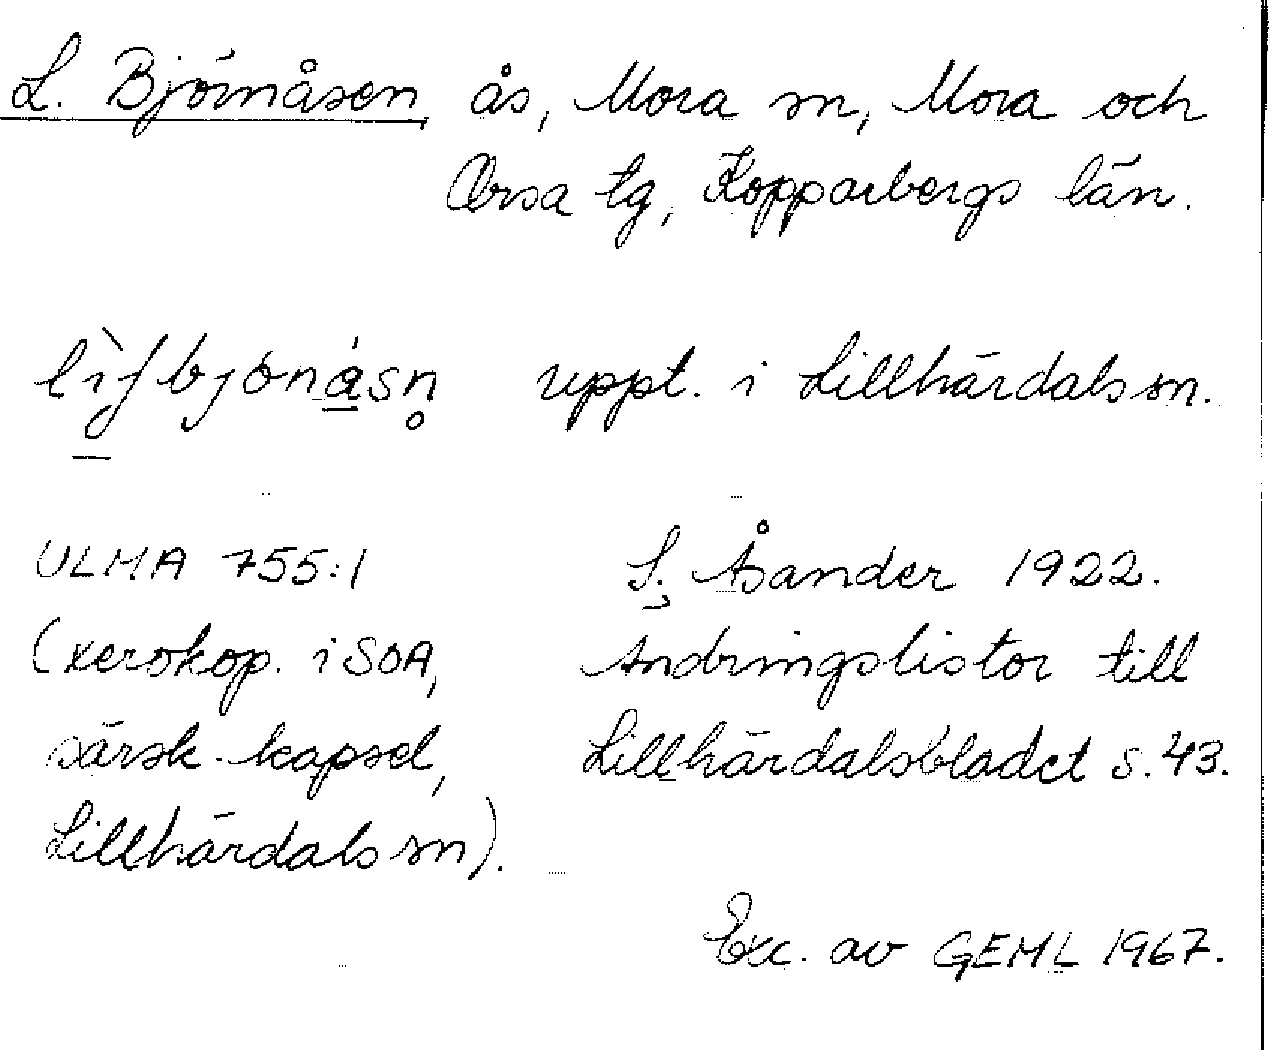 L. Björnåsen, ås, Mora sn, Mora och
Orsa tg, Kopparbergs län.
uppt. i Lillhärdals sn.
ULMA 755:1 S. Åsander 1922.
(xerokop. i SOA, Ändringslistor till
särsk. kapsel, Lillhärdalsbladet s. 43.
Lillhärdals sn).
Exc. av GEML 1967.